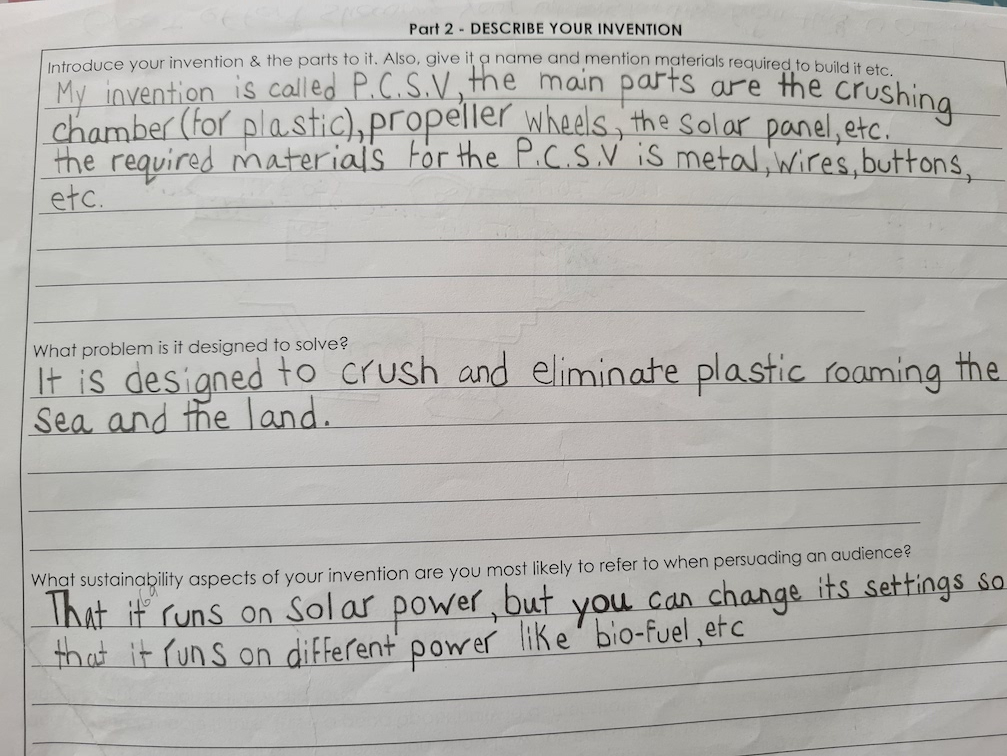 Part 2 - DESCRIBE YOUR INVENTION
Introduce your invention & the parts to it. Also, give it a name and mention materials required to build it etc.
My invention is called P.C.S.V, the main parts are the crushing
chamber (for plastic), propeller wheels, the solar panel, etc.
the required materials for the P.C.S.V is metal, wires, buttons,
etc.
What problem is it designed to solve?
It is designed to crush and eliminate plastic roaming the
sea and the land.
What sustainability aspects of your invention are you most likely to refer to when persuading an audience?
That it runs on solar power, but you can change its settings so
that it runs on different power like bio-fuel, etc